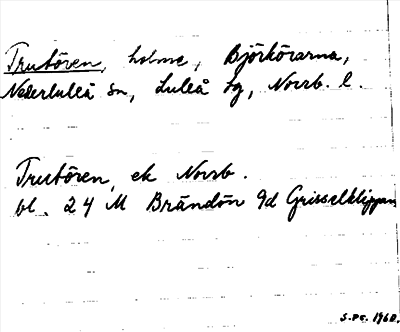 Trutören, holme, Björkörarna,
Nederluleå sn, Luleå tg, Norrb. l.
Trutören, ek Norrb.
bl. 24 M Brändön 9d Grisselklippan
S.Pc. 1960.